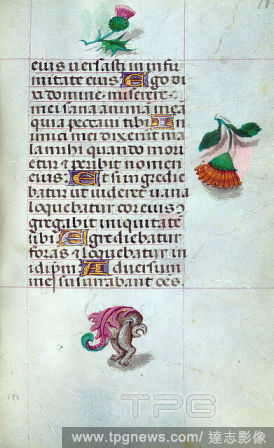 eius versasti in infir
mitate eius Ego di
xi domine miserere
mei sana animã meã
quia peccavi tibi In
imici mei dixerunt ma
la mihi quando mori
etur et peribit nomen
eius Et si ingredie
batur ut videret vana
loquebatur cor eius 
gregabit iniquitatē
sibi Egrediebatur
foras et loquebatur in
idipm̄ Adversum
me susurrabant oēs
TPG
www.tpgnews.com/達志影像